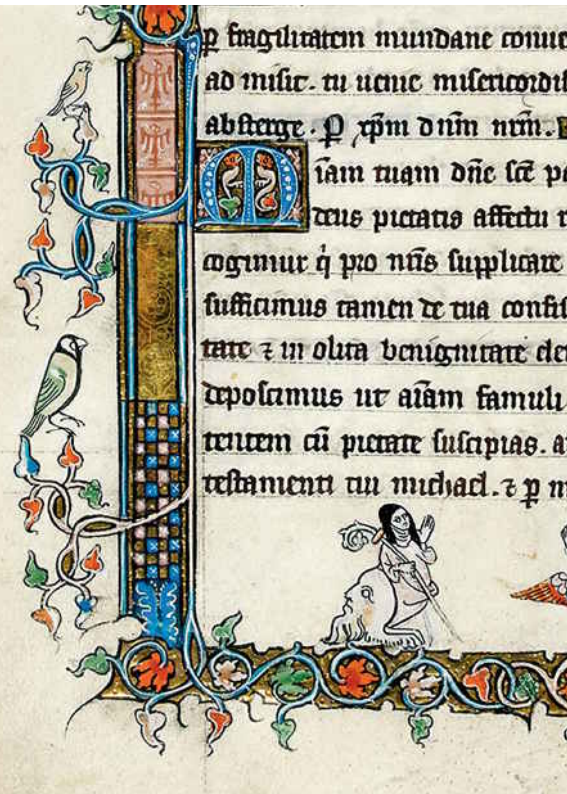 ꝑ fragilitatem mundane conue
ad misit. tu uenie misericordi
absterge. P xp̄m dn̄m nr̄m.
M iam tuam dn̄e sc̄e p
deus pietatis affectu r
cogimur q̇ pro nr̄is supplicare
sufficimus tamen de tua confi
tate ⁊ in olita benignitate de
deposcimus ut aīam famuli
tentem cū pietate suscipias. a
testamenti tui michael. ⁊ p m